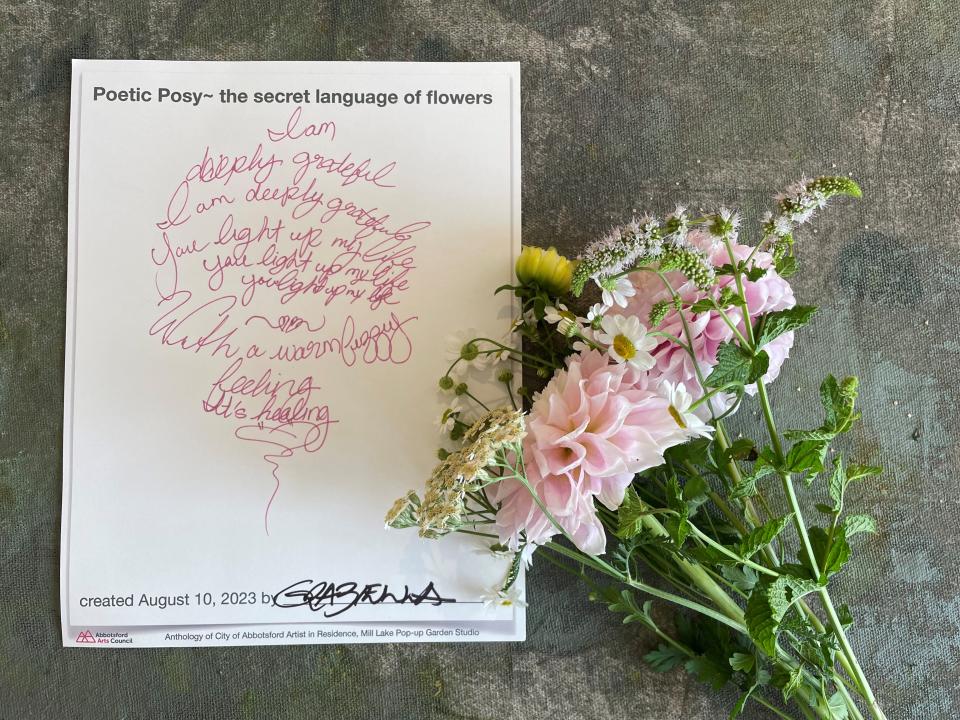 Poetic Posy~ the secret language of flowers
I am
deeply grateful
I am deeply grateful
You light up my life
you light up my life
you light up my life
With a warm fuzzy
feeling
It's healing
created August 10, 2023 by GRABIELLA
Abbotsford
Arts Council
Anthology of City of Abbotsford Artist in Residence, Mill Lake Pop-up Garden Studio